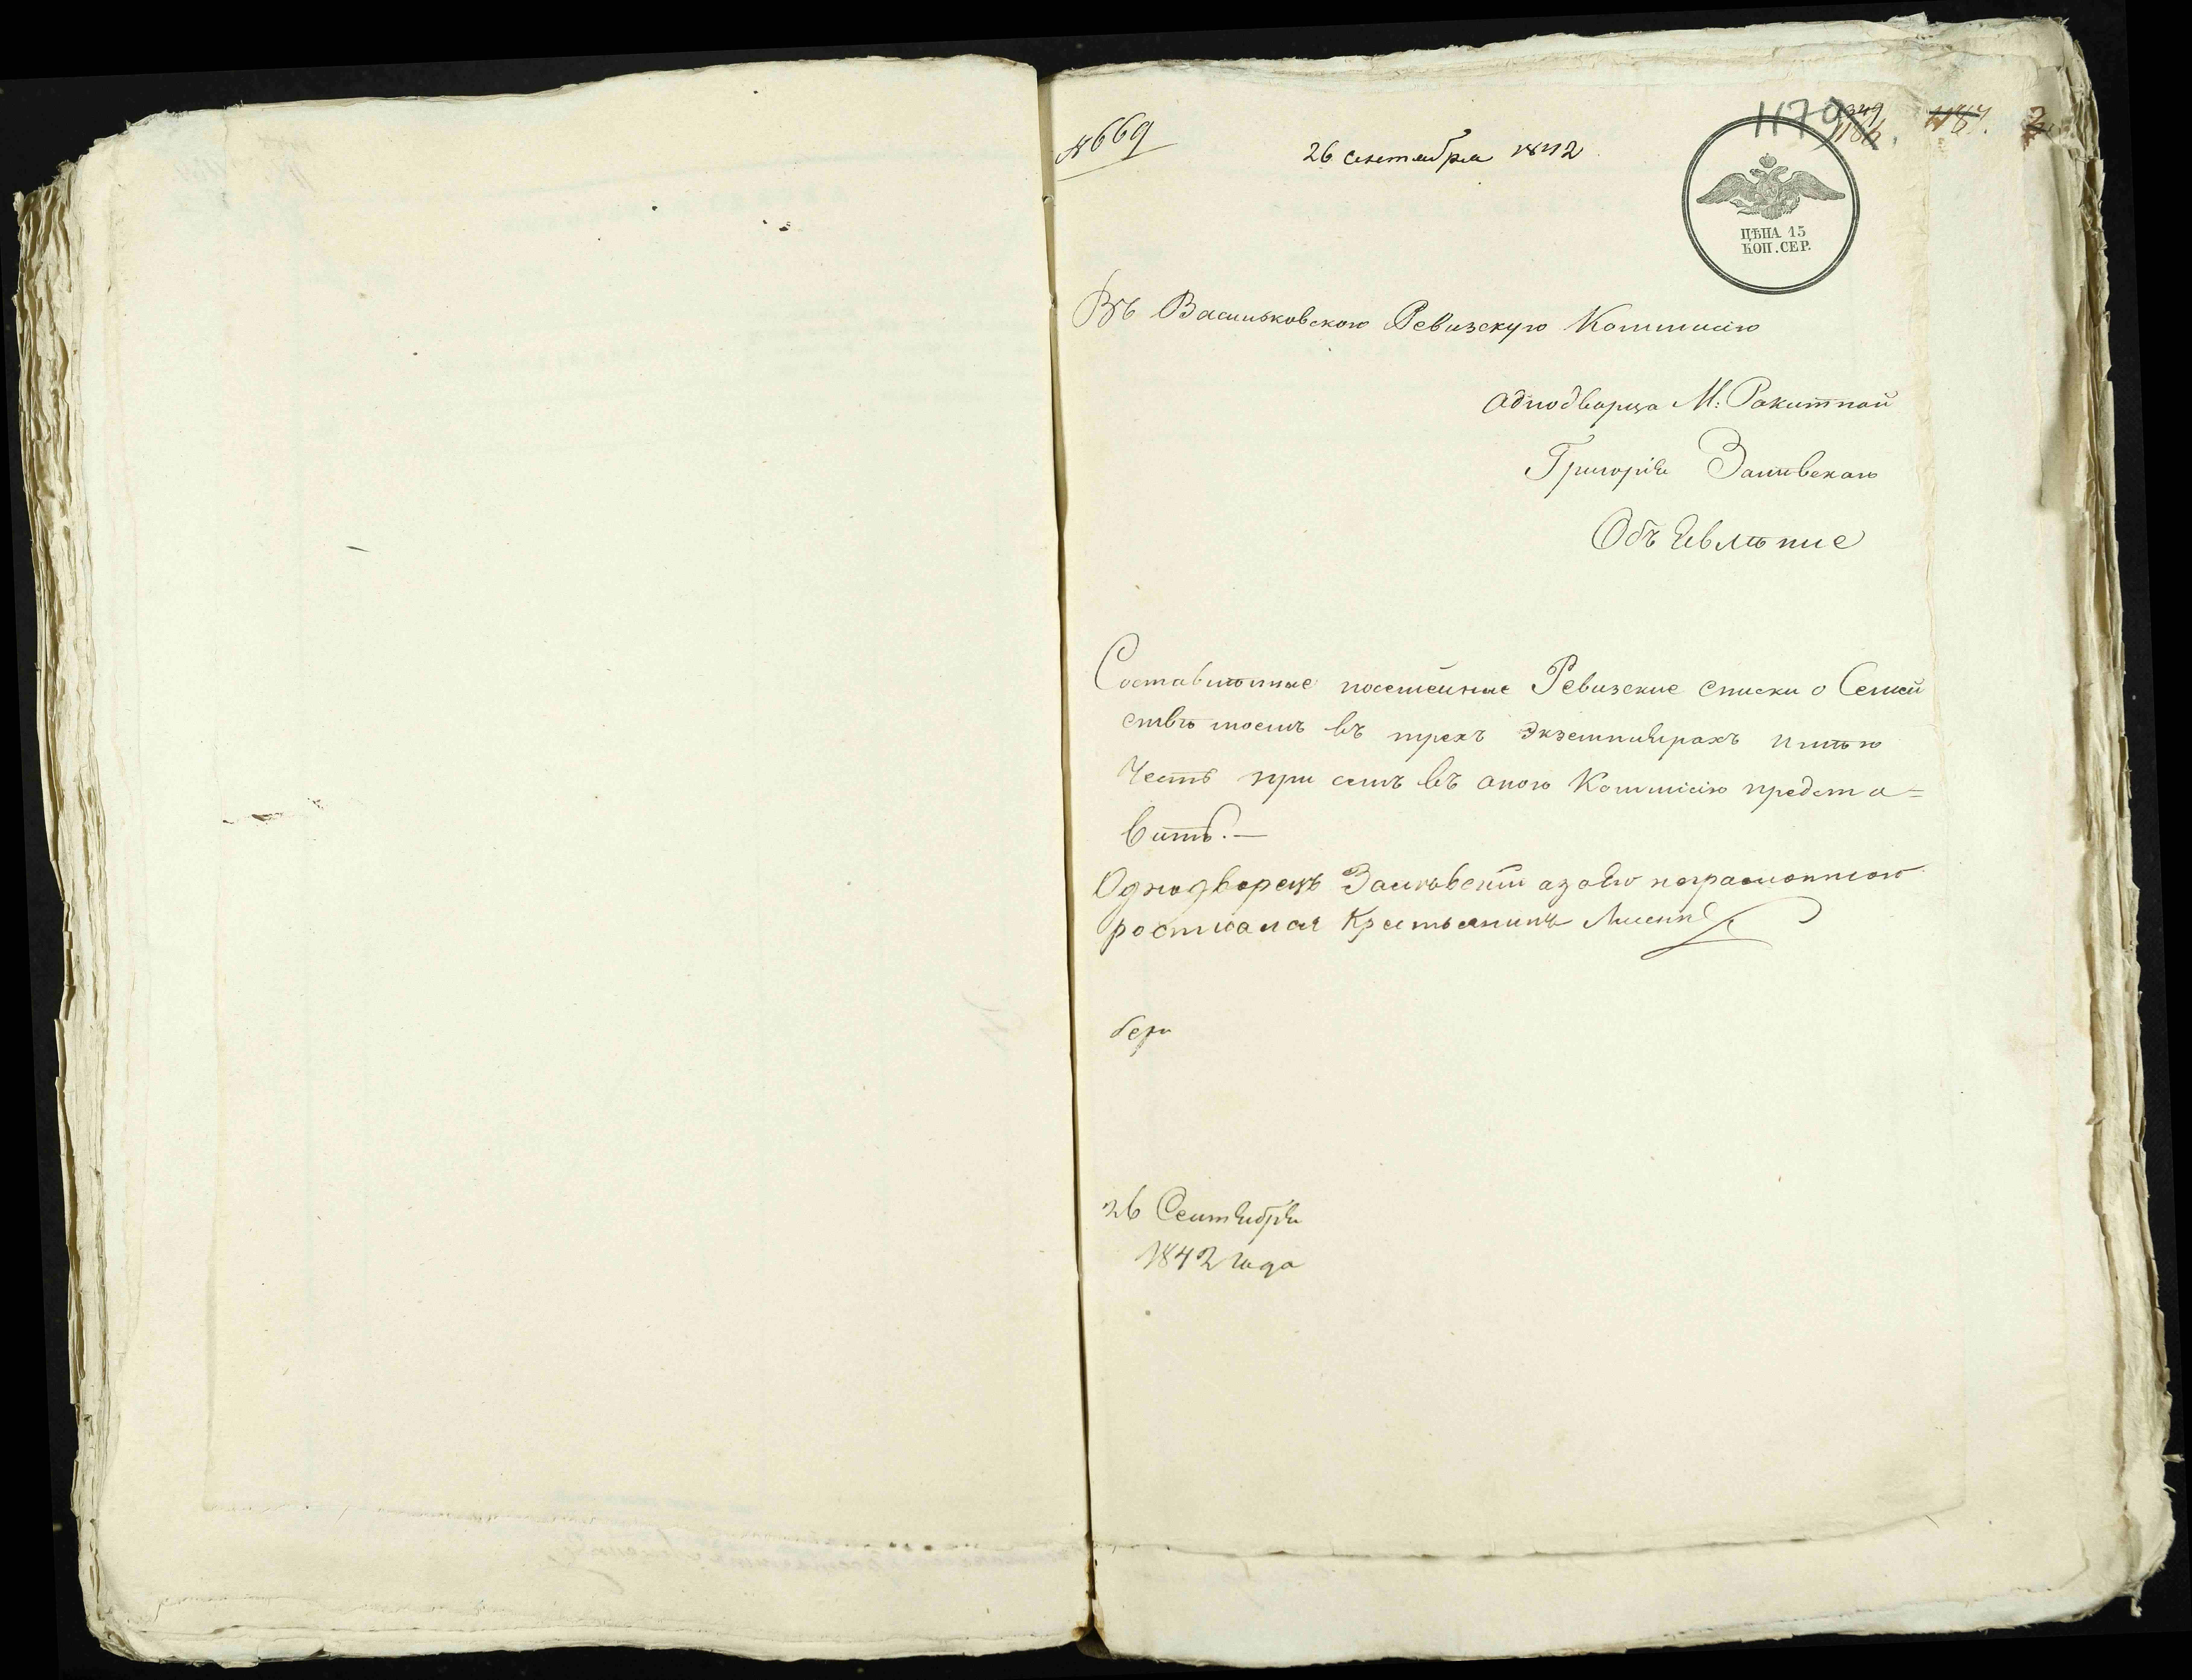 №669
26 сентября 1842
1179
ЦѢНА 15
КОП. СЕР.
Въ Васильковскою Ревизскую Коммисію
Аднодворца М: Ракитной
Григорія
Объявленіе
Составленные посемейные Ревизские списки о Семей
ствѣ моемъ въ трехъ экземплярахъ имѣю
Честь при семъ въ оною Коммисію предста=
вить.—
Однодворецъ а за его неграмотного
росписался Крестьянинъ
26 Сентября
1842 года